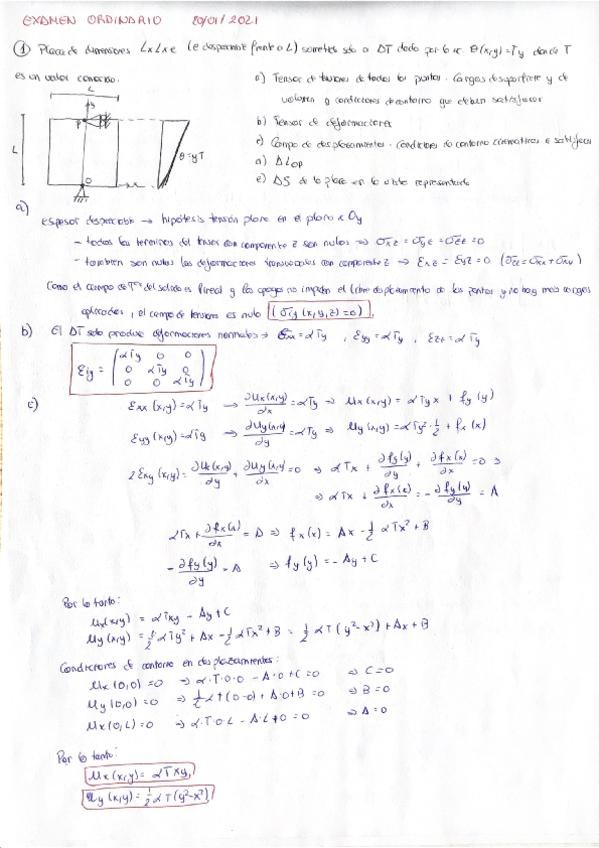 EXAMEN ORDINARIO 20/01/2021
① Placa de dimensiones LxLxe (e despreciable frente a L) sometida solo a ΔT dado por la ec. θ(x,y)=Ty donde T
es un valor conocido.
a) Tensor de tensiones de todos los puntos. Cargas de superficie y de
volumen y condiciones de contorno que deben satisfacer
b) Tensor de deformaciones
c) Campo de desplazamientos. Condiciones de contorno cinemáticas a satisfacer
d) ΔLOP
e) ΔS de la placa en la vista representada
L
y
P
L
θ=yT
O
x
a)
espesor despreciable → hipótesis tensión plana en el plano xOy
- todos los términos del tensor con componente z son nulos ⇒ σxz = σyz = σzz = 0
- también son nulas las deformaciones transversales con componente z → εxz = εyz = 0 (σzz = σxx + σyy)
Como el campo de Tª del solido es lineal y los apoyos no impiden el libre desplazamiento de los puntos y no hay más cargas
aplicadas, el campo de tensiones es nulo (σij (x,y,z) = 0)
b) El ΔT solo produce deformaciones normales → εxx = αTy , εyy = αTy , εzz = αTy
εij = (αTy 0 0
0 αTy 0
0 0 αTy)
c) εxx (x,y) = αTy → ∂ux(x,y)/∂x = αTy ⇒ ux(x,y) = αTyx + fy(y)
εyy (x,y) = αTy → ∂uy(x,y)/∂y = αTy ⇒ uy(x,y) = αTy²·1/2 + fx(x)
2εxy (x,y) = ∂ux(x,y)/∂y + ∂uy(x,y)/∂x = 0 ⇒ αTx + ∂fy(y)/∂y + ∂fx(x)/∂x = 0 ⇒
⇒ αTx + ∂fx(x)/∂x = - ∂fy(y)/∂y = A
αTx + ∂fx(x)/∂x = A ⇒ fx(x) = Ax - 1/2 αTx² + B
- ∂fy(y)/∂y = A ⇒ fy(y) = - Ay + C
Por lo tanto:
ux(x,y) = αTxy - Ay + C
uy(x,y) = 1/2 αTy² + Ax - 1/2 αTx² + B = 1/2 αT(y²-x²) + Ax + B
Condiciones de contorno en desplazamientos:
ux(0,0) = 0 ⇒ α·T·0·0 - A·0 + C = 0 ⇒ C = 0
uy(0,0) = 0 ⇒ 1/2 αT(0-0) + A·0 + B = 0 ⇒ B = 0
ux(0,L) = 0 ⇒ α·T·0·L - A·L + 0 = 0 ⇒ A = 0
Por lo tanto:
ux(x,y) = αTxy
uy(x,y) = 1/2 αT(y²-x²)